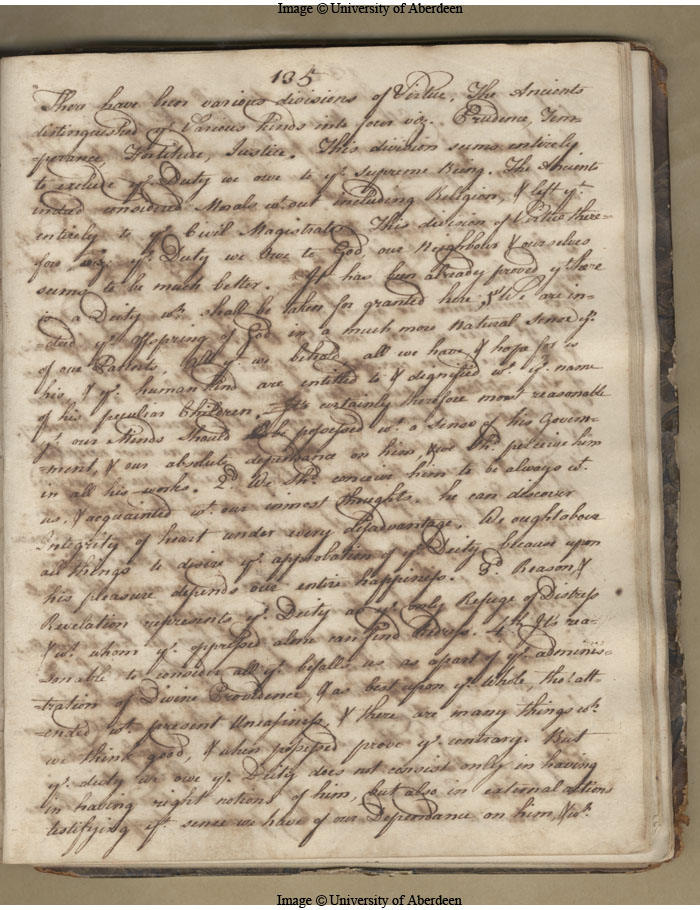 Image © University of Aberdeen
135
There have been various divisions of Virtue. The Ancients
distinguished yᵉ Various kinds into four viz. Prudence, Tem-
-perance, Fortitude, Justice. This division sums entirely
to exclude yᵉ Duty we owe to yᵉ Supreme Being. The Ancients
indeed considered Morals wᵗout including Religion, & left yᵗ
entirely to yᵉ Civil Magistrate. This division of Virtue there=
fore, viz: yᵉ Duty we Owe to God, our Neighbour & ourselves
sums to be much better. It has been already proved yᵗ there
is a Deity wʰ shall be taken for granted here. We are in-
-deed yᵉ offspring of God in a much more Natural sense yⁿ
of our Parents. All yᵗ we behold, all we have & hope for is
his, & yᵉ human kind are entitled to & dignified wᵗ yᵉ name
of his peculiar Children. It's certainly therefore most reasonable
yᵗ our Minds should be possessed wᵗ a sense of his Govern-
=ment, & our absolute dependance on him, shᵈ perceive him
in all his works. 2ᵈ We shᵈ conceive him to be always wᵗ
us, & acquainted wᵗ our inmost thoughts. he can discover
Integrity of heart under every disadvantage. We ought above
all things to desire yᵉ approbation of yᵉ Deity because upon
his pleasure depends our entire happiness. 3ᵈ Reason &
Revelation represents yᵉ Deity as yᵉ only Refuge of Distress
& wᵗ whom yᵉ oppressed alone can find Redress. 4ᵗʰ It's rea-
-sonable to consider all yᵗ befalls us as a part of yᵉ adminis=
-tration of Divine Providence, & as best upon yᵉ whole, tho' att-
-ended wᵗ present Uneasiness, & there are many things wʰ
we think good, & when possessed prove yᵉ contrary. But
yᵉ duty we owe yᵉ Deity does not consist only in having
in having right notions of him, but also in external actions
testifying yᵉ sense we have of our Dependance on him, & wʰ
Image © University of Aberdeen